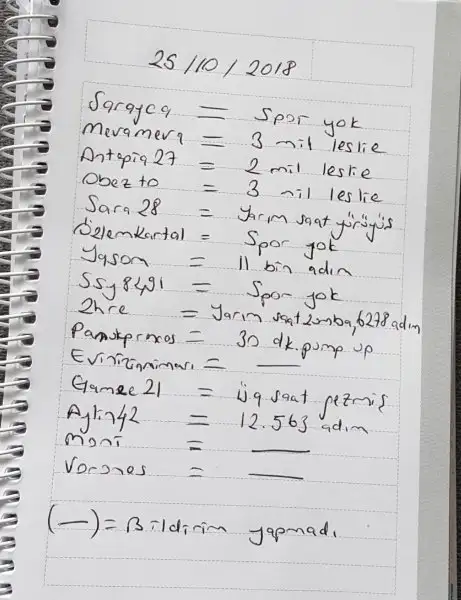 25/10/2018
Sarayca = Spor yok
meramera = 3 mil leslie
Antepia 27 = 2 mil leslie
Obez to = 3 mil leslie
Sara 28 = Yarım saat yürüyüş
Özlemkartal = Spor yok
Yason = 11 bin adım
Ssy8491 = Spor yok
Zhre = Yarım saat zumba, 6278 adım
= 30 dk. pump up
= —
Gamze 21 = saat gezmiş
Aylin42 = 12.563 adım
moni = —
Vorones = —
(—) = Bildirim yapmadı